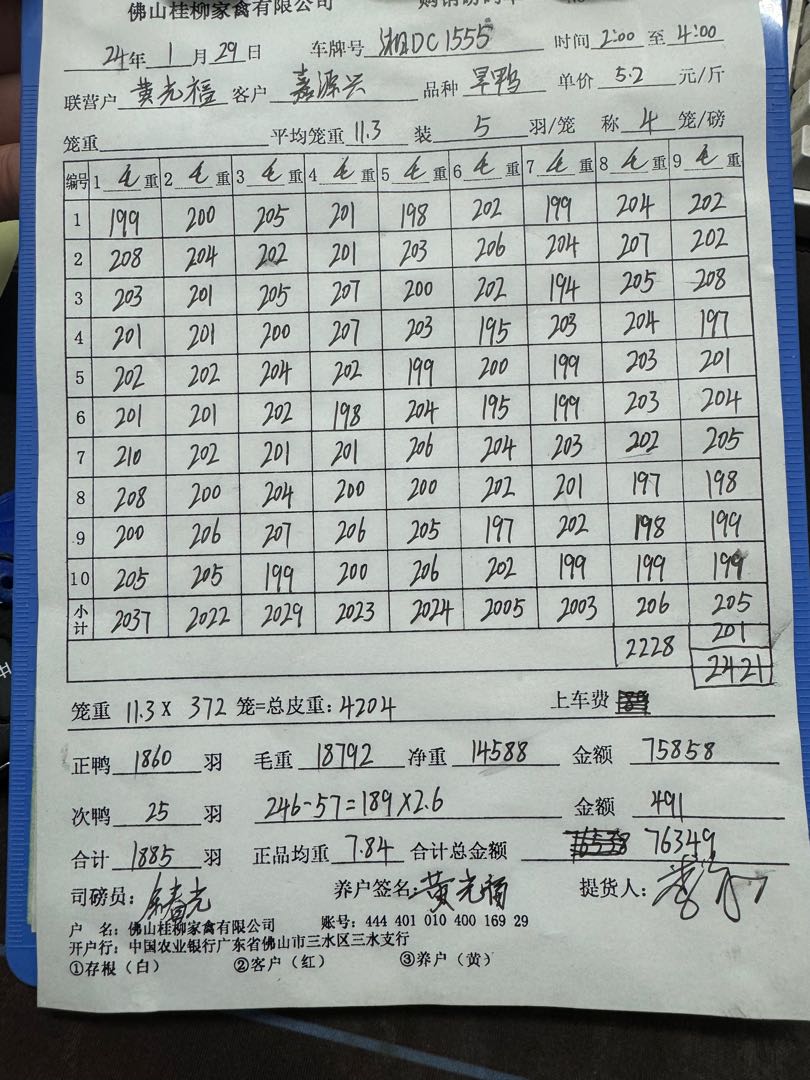 佛山桂柳家禽有限公司
24年 1月29日 车牌号 湘DC1555 时间 2:00 至 4:00
联营户 黄光福 客户 嘉源兴 品种 旱鸭 单价 5.2 元/斤
笼重 平均笼重 11.3 装 5 羽/笼 称 4 笼/磅
编号 1 毛 重 2 毛 重 3 毛 重 4 毛 重 5 毛 重 6 毛 重 7 毛 重 8 毛 重 9 毛 重
1 199 200 205 201 198 202 199 204 202
2 208 204 202 201 203 206 204 207 202
3 203 201 205 207 200 202 194 205 208
4 201 201 200 207 203 195 203 204 197
5 202 202 204 202 199 200 199 203 201
6 201 201 202 198 204 195 199 203 204
7 210 202 201 201 206 204 203 202 205
8 208 200 204 200 200 202 201 197 198
9 200 206 207 206 205 197 202 198 199
10 205 205 199 200 206 202 199 199 199
小计 2037 2022 2029 2023 2024 2005 2003 206 205
2228 201
2421
笼重 11.3 X 372 笼=总皮重: 4204 上车费
正鸭 1860 羽 毛重 18792 净重 14588 金额 75858
次鸭 25 羽 246-57=189X2.6 金额 491
合计 1885 羽 正品均重 7.84 合计总金额 76538 76349
司磅员: 养户签名: 黄光福 提货人:
户 名: 佛山桂柳家禽有限公司 账号: 444 401 010 400 169 29
开户行: 中国农业银行广东省佛山市三水区三水支行
①存根(白) ②客户(红) ③养户(黄)